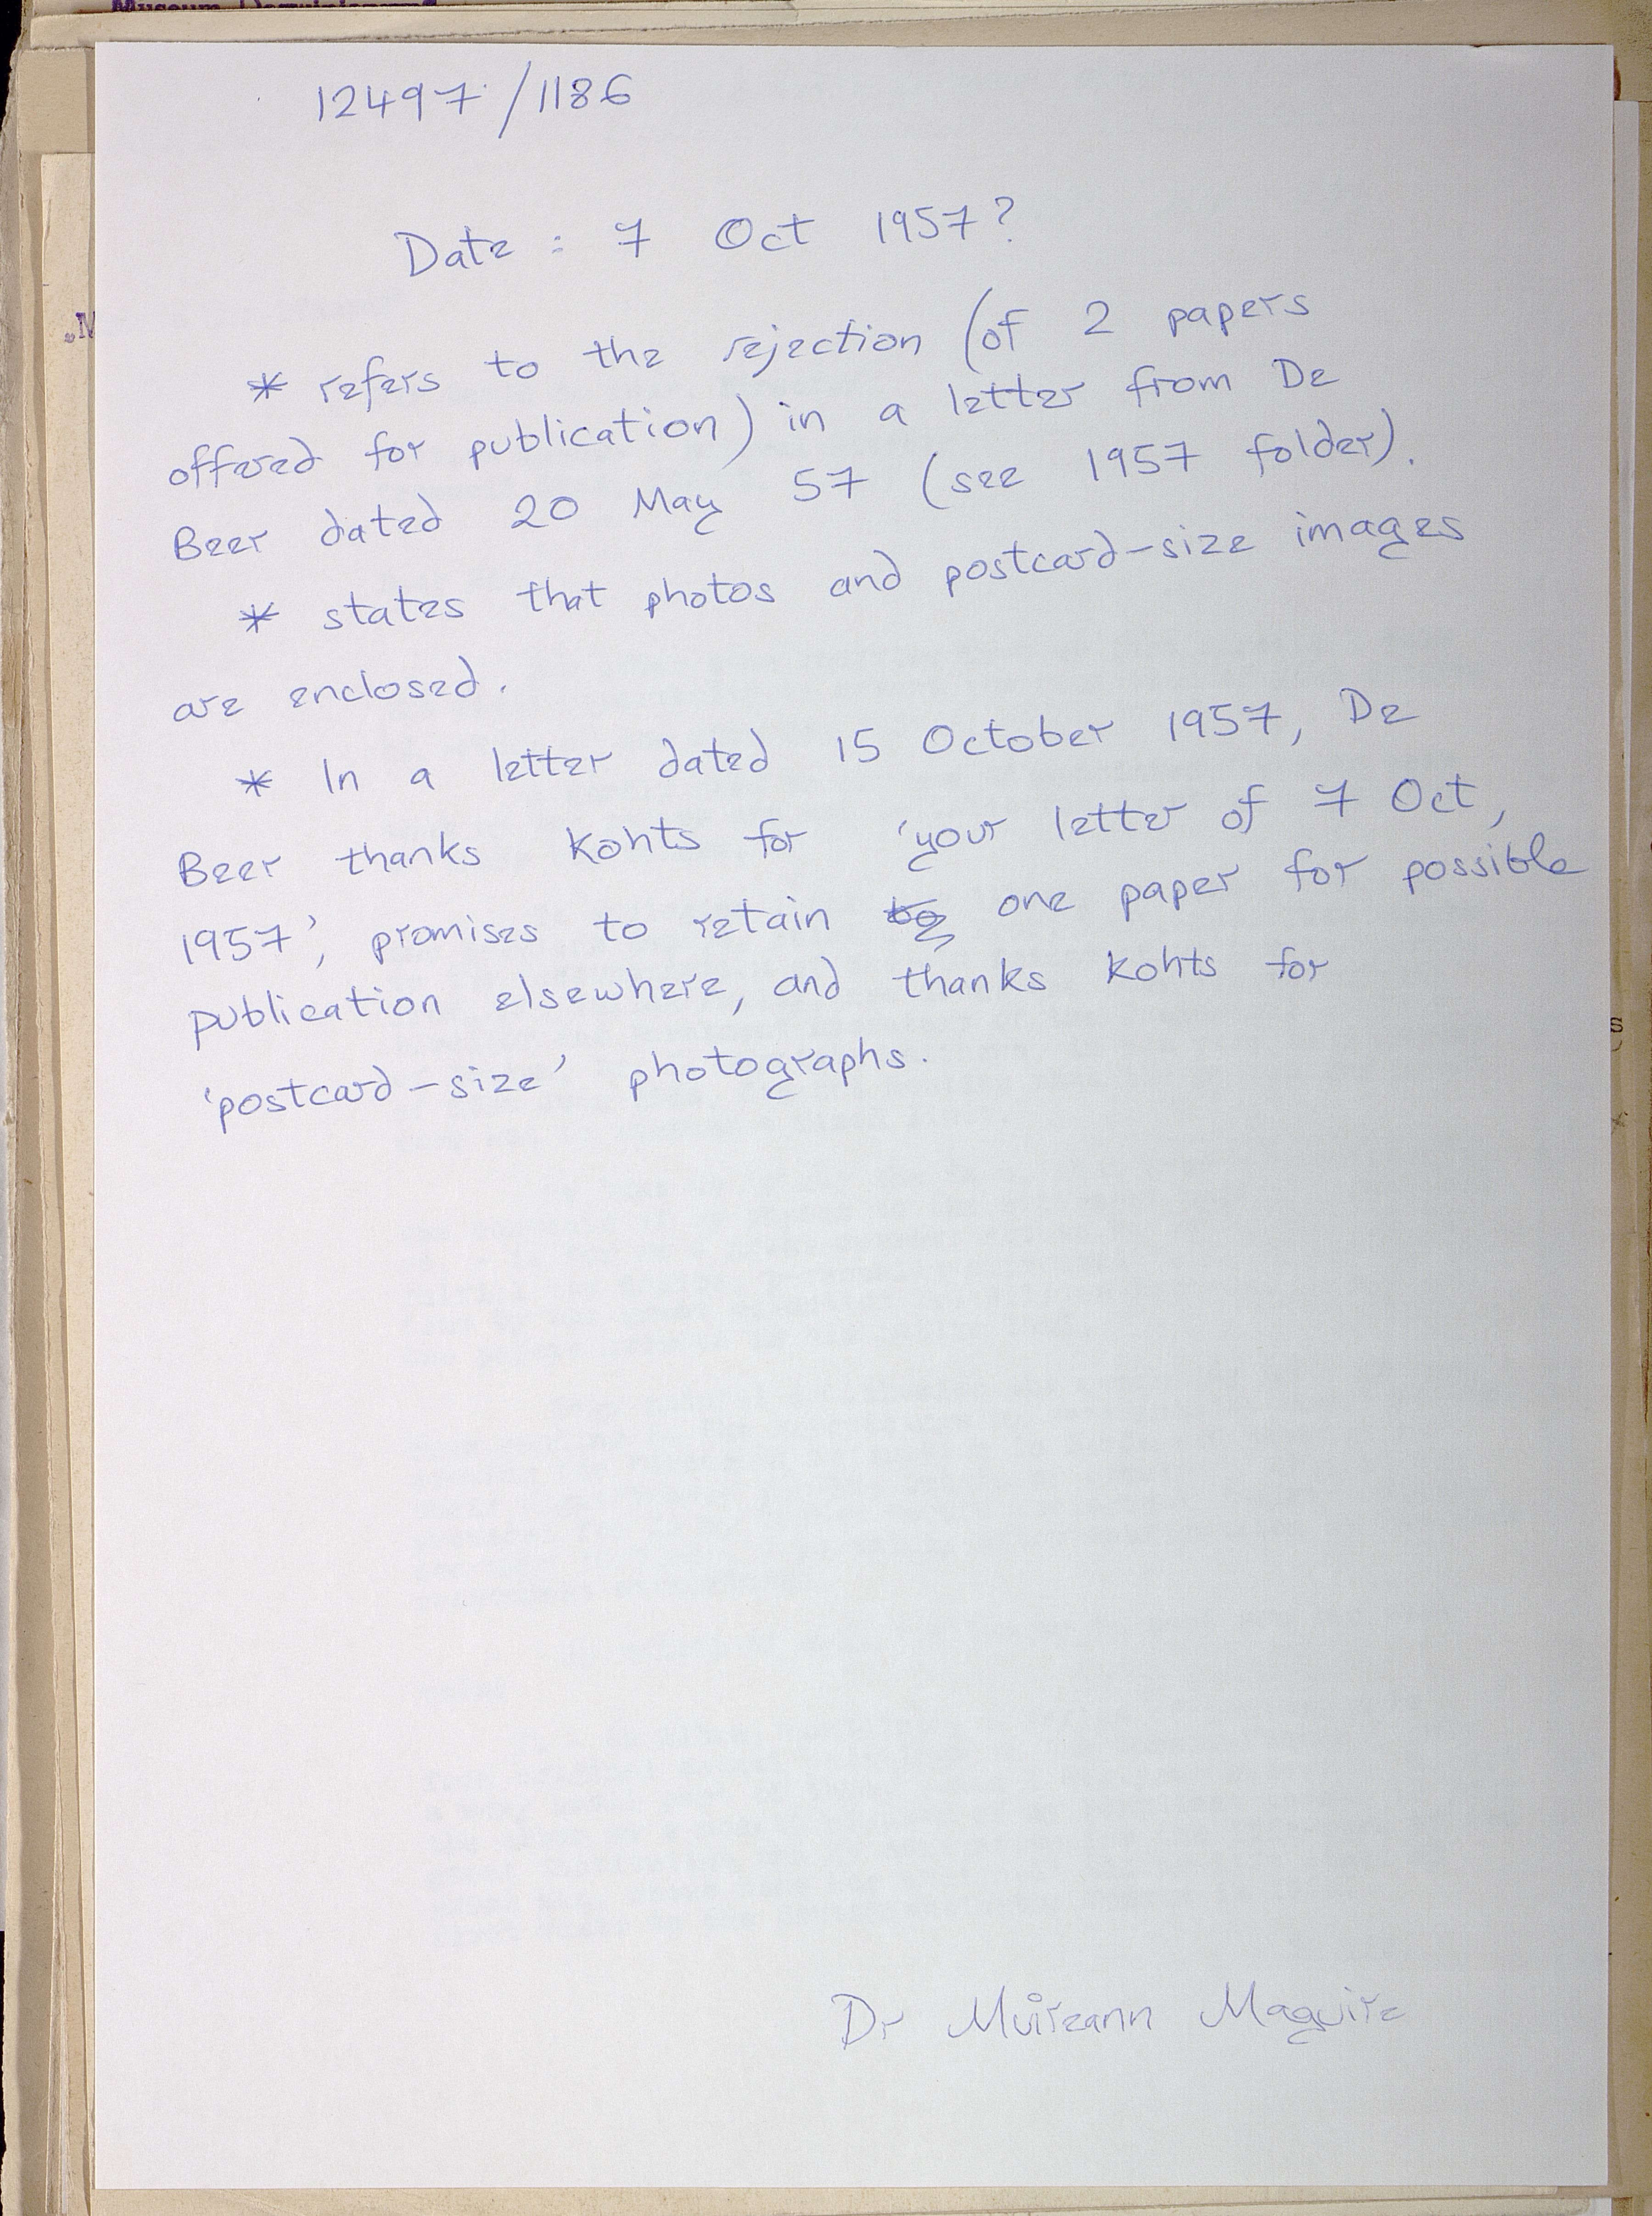 12497/1186
Date : 7 Oct 1957?
* refers to the rejection (of 2 papers
offered for publication) in a letter from De
Beer dated 20 May 57 (see 1957 folder).
* states that photos and postcard-size images
are enclosed.
* In a letter dated 15 October 1957, De
Beer thanks Kohts for 'your letter of 7 Oct,
1957', promises to retain one paper for possible
publication elsewhere, and thanks Kohts for
'postcard-size' photographs.
Dr Muireann Maguire